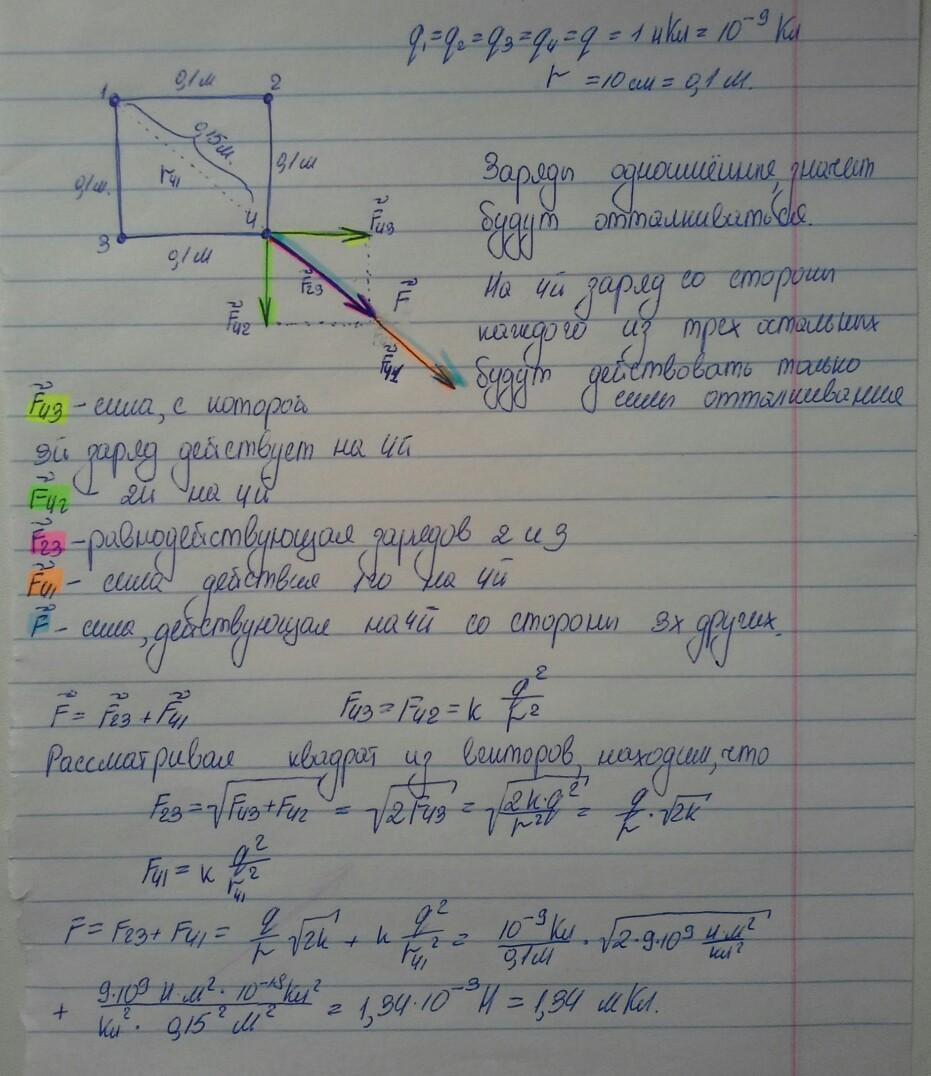 q₁=q₂=q₃=q₄=q = 1 нКл = 10⁻⁹ Кл
r = 10 см = 0,1 м.
0,1 м
1
2
0,15 м.
0,1 м.
r₄₁
0,1 м
4
3
0,1 м
F⃗₄₃
F⃗₂₃
F⃗
F⃗₄₂
F⃗₄₁
Заряды одноимённые, значит
будут отталкиваться.
На 4й заряд со стороны
каждого из трех остальных
будут действовать только
силы отталкивания
F⃗₄₃ - сила, с которой
3й заряд действует на 4й
F⃗₄₂ - 2й на 4й
F⃗₂₃ - равнодействующая зарядов 2 и 3
F⃗₄₁ - сила действия 1го на 4й
F⃗ - сила, действующая на 4й со стороны 3х других.
F⃗ = F⃗₂₃ + F⃗₄₁ F₄₃ = F₄₂ = k q²/r²
Рассматривая квадрат из векторов, находим, что
F₂₃ = √(F₄₃+F₄₂) = √(2F₄₃) = √(2k·q²/r²) = q/r · √(2k)
F₄₁ = k q²/r₄₁²
F = F₂₃ + F₄₁ = q/r √(2k) + k q²/r₄₁² = 10⁻⁹ Кл/0,1 м · √(2·9·10⁹ Н·м²/кл²)
+ 9·10⁹ Н·м²·10⁻¹⁸ Кл²/Кл²·0,15² м² = 1,34·10⁻³ Н = 1,34 мКл.